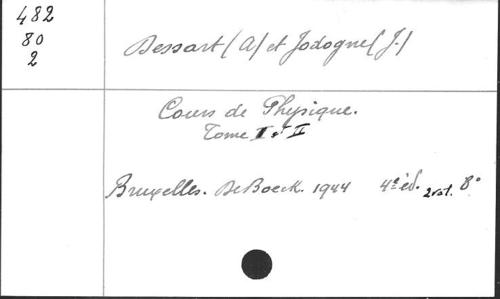 482
80
2
Dessart (A) et Jodogne (J.)
Cours de Physique.
Tome I et II
Bruxelles. De Boeck. 1944 4e éd. 2 vol. 8°